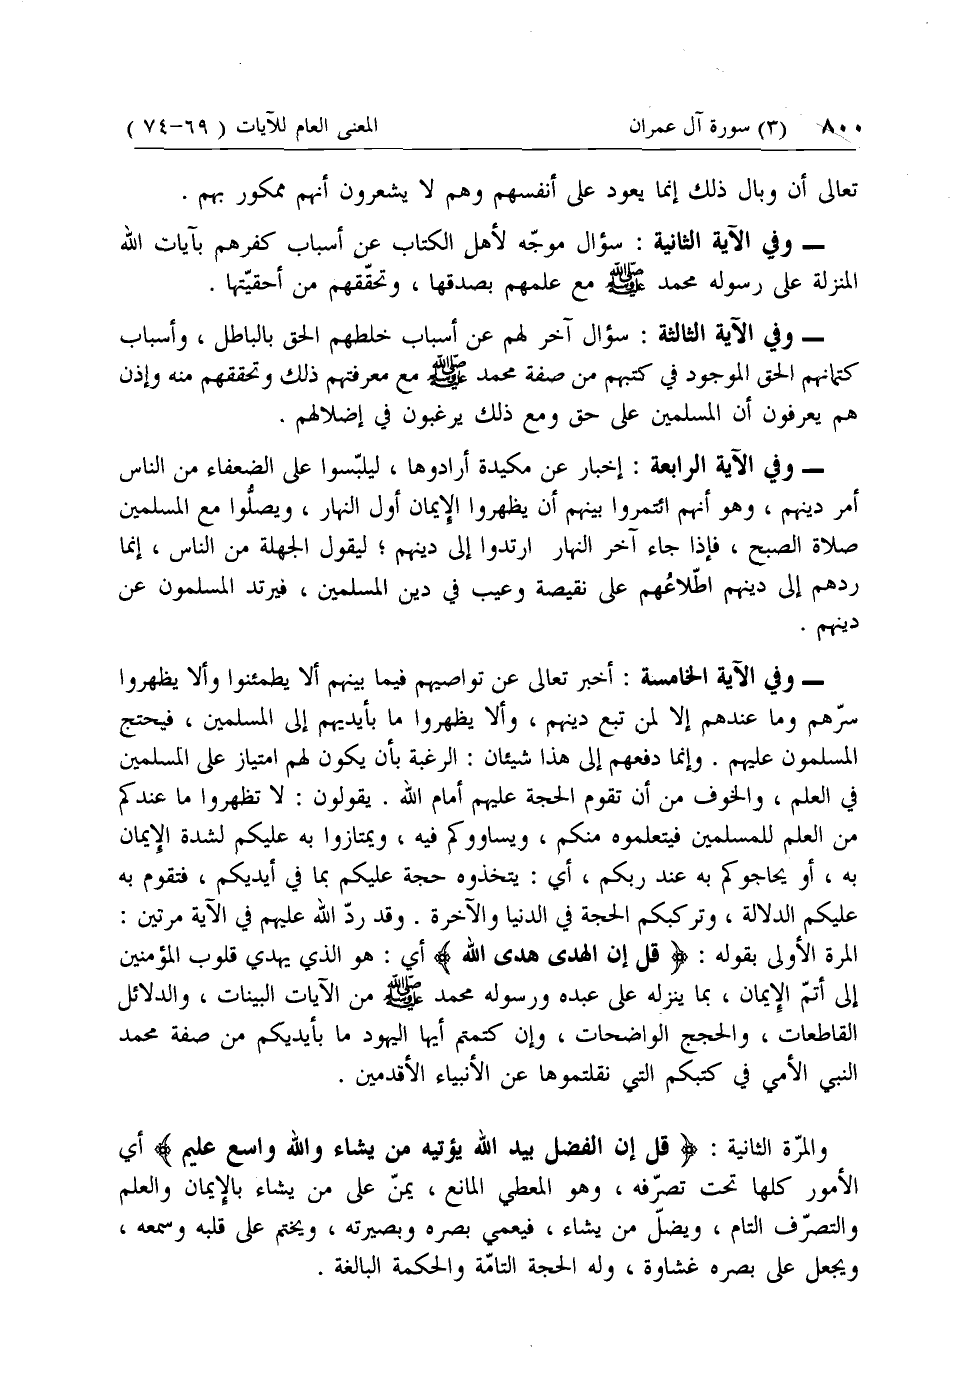 ٨٠٠ (٣) سورة آل عمران المعنى العام للآيات ( ٦٩-٧٤ )
تعالى أن وبال ذلك إنما يعود على أنفسهم وهم لا يشعرون أنهم ممكور بهم .
ــ وفي الآية الثانية : سؤال موجّه لأهل الكتاب عن أسباب كفرهم بآيات الله
المنزلة على رسوله محمد ﷺ مع علمهم بصدقها ، وتحقّقهم من أحقيّتها .
ــ وفي الآية الثالثة : سؤال آخر لهم عن أسباب خلطهم الحق بالباطل ، وأسباب
كتمانهم الحق الموجود في كتبهم من صفة محمد ﷺ مع معرفتهم ذلك وتحققهم منه وإذن
هم يعرفون أن المسلمين على حق ومع ذلك يرغبون في إضلالهم .
ــ وفي الآية الرابعة : إخبار عن مكيدة أرادوها ، ليلبّسوا على الضعفاء من الناس
أمر دينهم ، وهو أنهم ائتمروا بينهم أن يظهروا الإيمان أول النهار ، ويصلُّوا مع المسلمين
صلاة الصبح ، فإذا جاء آخر النهار ارتدوا إلى دينهم ؛ ليقول الجهلة من الناس ، إنما
ردهم إلى دينهم اطّلاعُهم على نقيصة وعيب في دين المسلمين ، فيرتد المسلمون عن
دينهم .
ــ وفي الآية الخامسة : أخبر تعالى عن تواصيهم فيما بينهم ألا يطمئنوا وألا يظهروا
سرّهم وما عندهم إلا لمن تبع دينهم ، وألا يظهروا ما بأيديهم إلى المسلمين ، فيحتج
المسلمون عليهم . وإنما دفعهم إلى هذا شيئان : الرغبة بأن يكون لهم امتياز على المسلمين
في العلم ، والخوف من أن تقوم الحجة عليهم أمام الله . يقولون : لا تظهروا ما عندكم
من العلم للمسلمين فيتعلموه منكم ، ويساووكم فيه ، ويمتازوا به عليكم لشدة الإيمان
به ، أو يحاجوكم به عند ربكم ، أي : يتخذوه حجة عليكم بما في أيديكم ، فتقوم به
عليكم الدلالة ، وتركبكم الحجة في الدنيا والآخرة . وقد ردّ الله عليهم في الآية مرتين :
المرة الأولى بقوله : ﴿ قل إن الهدى هدى الله ﴾ أي : هو الذي يهدي قلوب المؤمنين
إلى أتمّ الإيمان ، بما ينزله على عبده ورسوله محمد ﷺ من الآيات البينات ، والدلائل
القاطعات ، والحجج الواضحات ، وإن كتمتم أيها اليهود ما بأيديكم من صفة محمد
النبي الأمي في كتبكم التي نقلتموها عن الأنبياء الأقدمين .
والمرّة الثانية : ﴿ قل إن الفضل بيد الله يؤتيه من يشاء والله واسع عليم ﴾ أي
الأمور كلها تحت تصرّفه ، وهو المعطي المانع ، يمنّ على من يشاء بالإيمان والعلم
والتصرّف التام ، ويضلّ من يشاء ، فيعمي بصره وبصيرته ، ويختم على قلبه وسمعه ،
ويجعل على بصره غشاوة ، وله الحجة التامّة والحكمة البالغة .